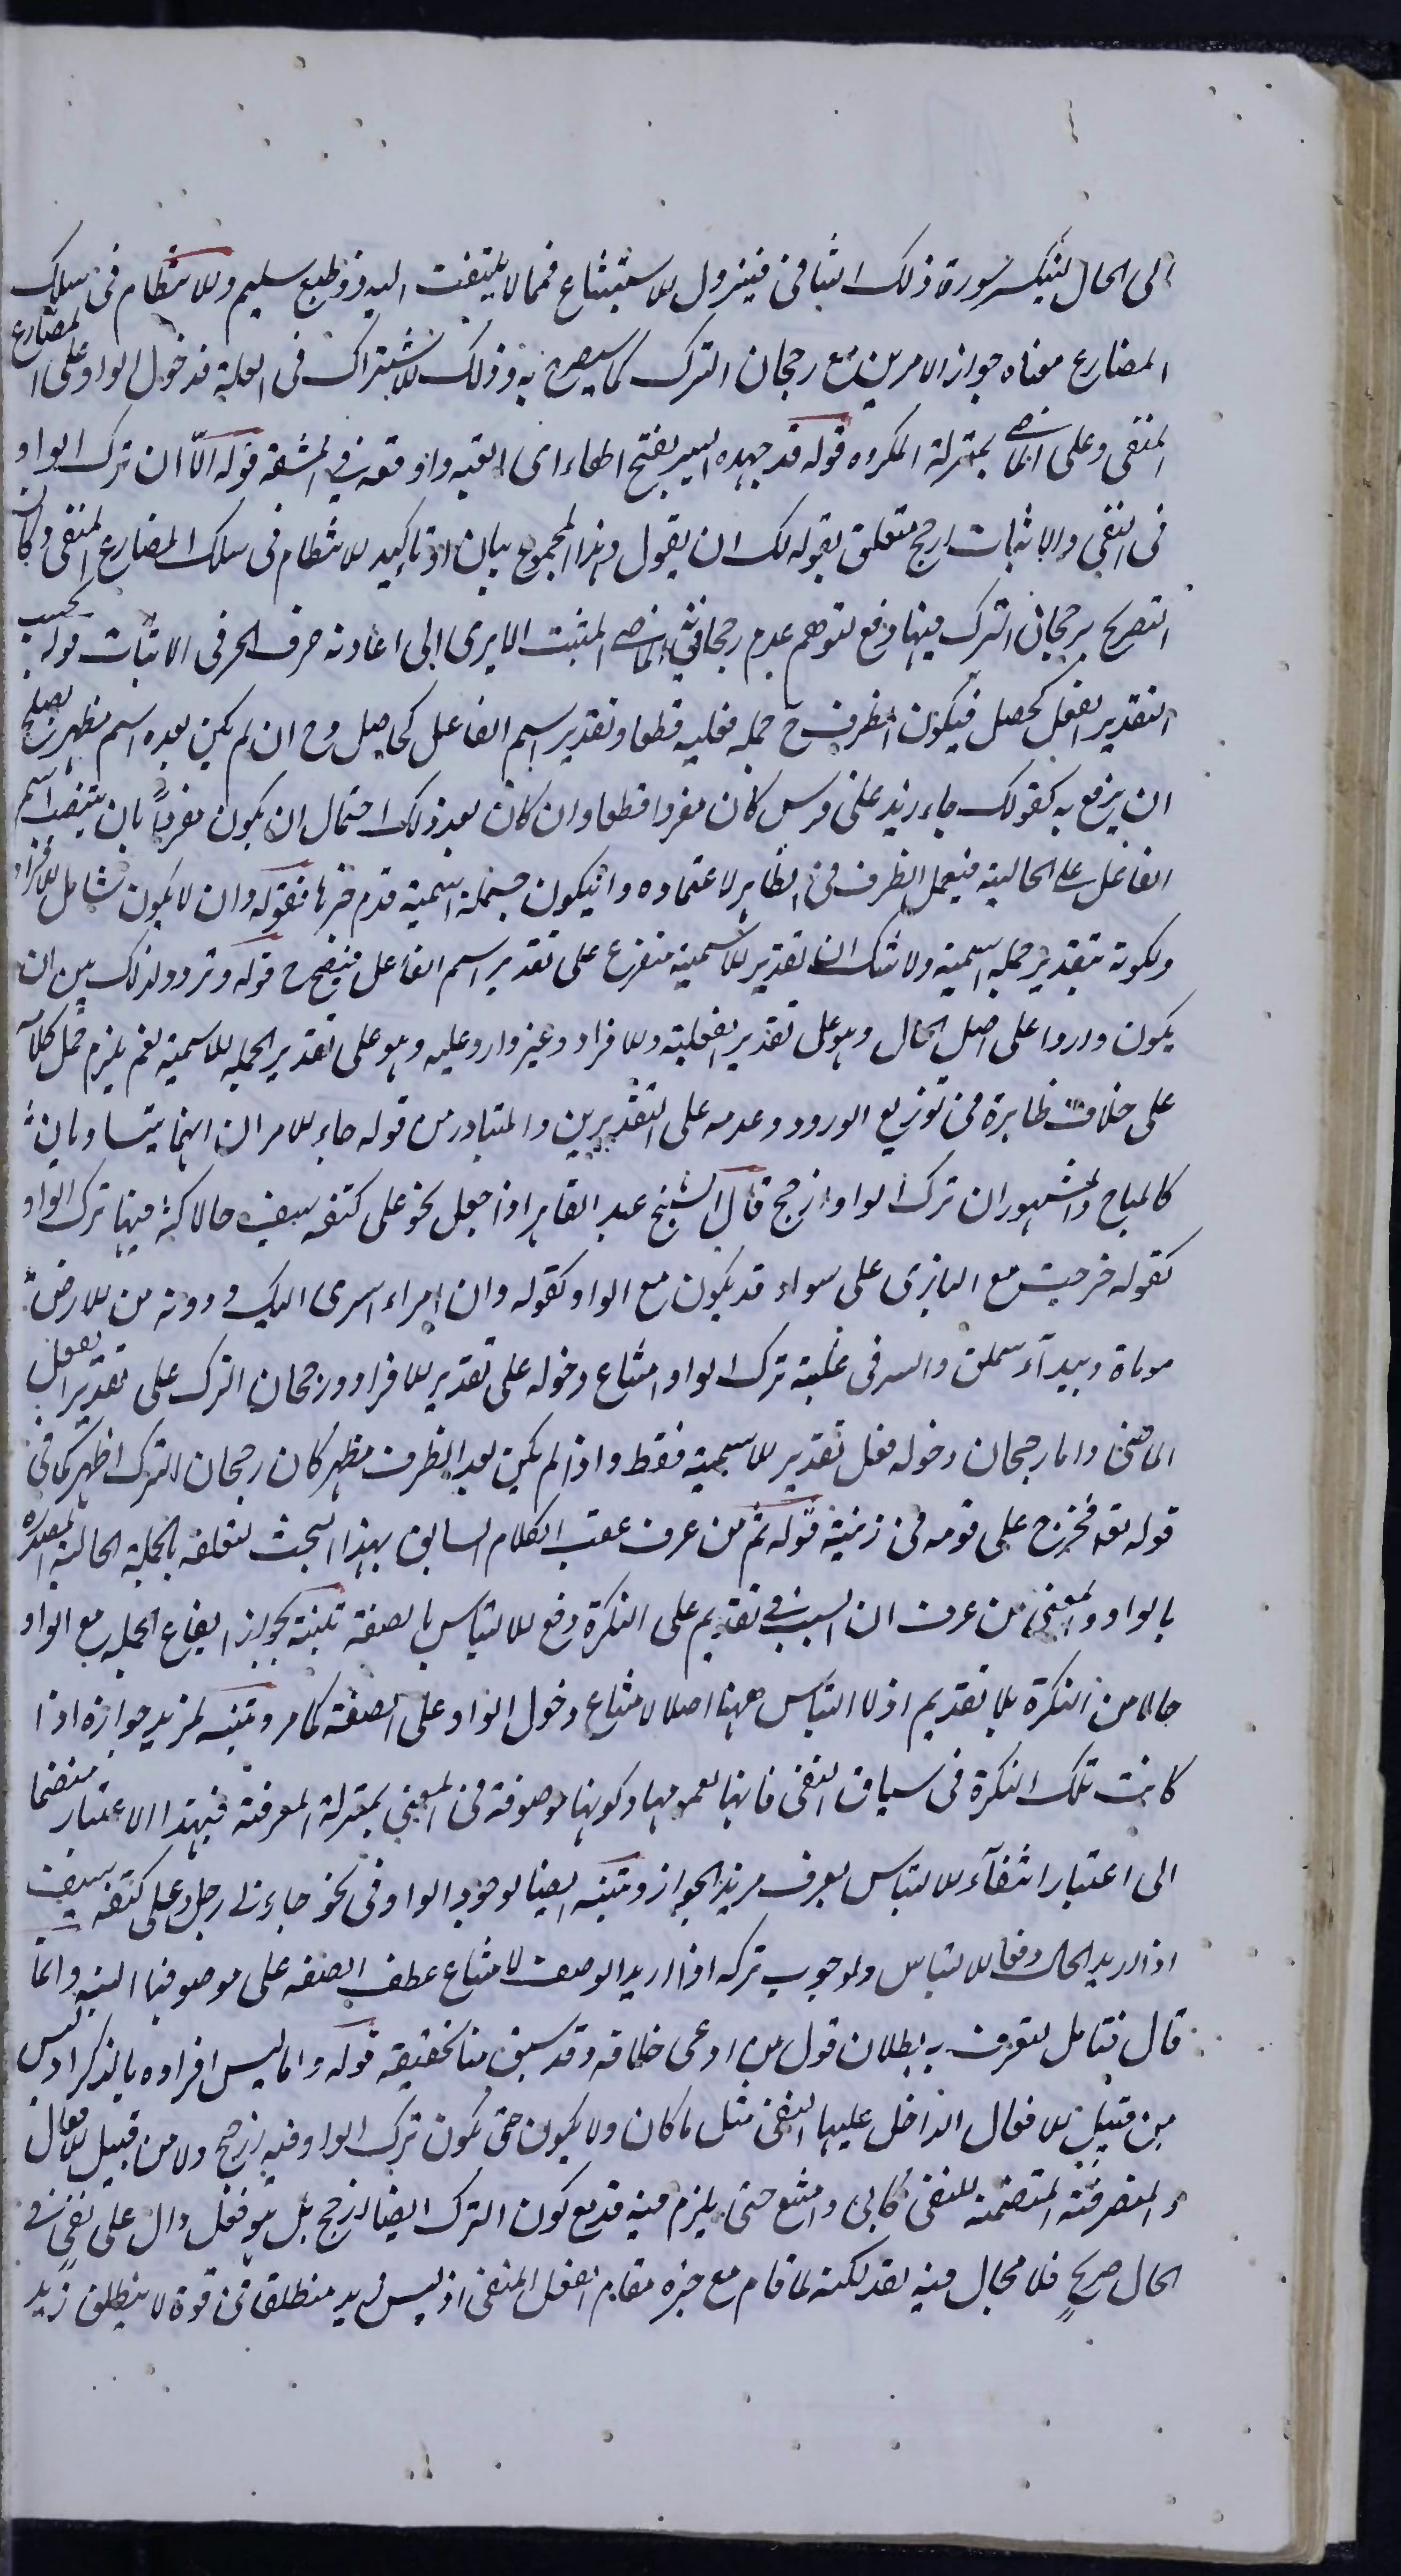 الى الحال لينكسر سورة ذلك التنافى فينزول الاستبشاع فمما لا يلتفت اليه ذو طبع سليم والانتظام فى سلك
المضارع معناه جواز الامرين مع رجحان الترك كما سيصرح به وذلك للاشتراك فى العلة فدخول الواو على المضارع
المنفى وعلى الماضى بمنزلة المكروه قوله قد جهده السير بفتح الهاء اى اتعبه واوقعه فى المشقة قوله الّا ان ترك الواو
فى النفى والاثبات ارجح متعلق بقوله لك ان يقول وهذا المجموع بيان او تاكيد للانتظام فى سلك المضارع المنفى وكان
التصريح برجحان الترك فيها دفع لتوهم عدم رجحان فى الماضى المثبت الا يرى الى اعادته حرف الجر فى الاثبات قوله بحسب
التقدير الفعل كحصل فيكون الظرف ح جملة فعلية قطعا وتقدير اسم الفاعل كحاصل وح ان لم يكن بعده اسم مظهر يصلح
ان يرفع به كقولك جاء زيد على فرس كان مفردا قطعا وان كان بعد ذلك احتمال ان يكون مفرداً بان ينتصب اسم
الفاعل على الحالية فيعمل الظرف فى الظاهر لاعتماده وان يكون جملة اسمية قدم خبرها فقوله وان لا يكون شامل للافراد
ولكونه بتقدير جملة اسمية ولا شك ان تقدير الاسمية متفرع على تقدير اسم الفاعل فيتضح ح قوله وتردد لذلك بين ان
يكون واردا على اصل الحال وهو على تقدير الفعلية والافراد وغير وارد عليه وهو على تقدير الجملة الاسمية نعم يلزم حمل كلامه
على خلاف ظاهره من توزيع الورود وعدمه على التقديرين والمتبادر من قوله جاء الامران انهما يتساويان
كالمباح والمشهور ان ترك الواو ارجح قال الشيخ عبد القاهر اذا جعل نحو على كتفه سيف حالا كثر فيها ترك الواو
كقوله خرجت مع البازى على سواد قد يكون مع الواو كقوله وان امراء اسرى اليك ودونه من الارض
موماة وبيدآء سملق والسر فى غلبة ترك الواو امتناع دخوله على تقدير الافراد ورجحان الترك على تقدير الفعل
الماضى واما رجحان دخوله فعلى تقدير الاسمية فقط واذا لم يكن بعد الظرف مظهر كان رجحان الترك اظهر كما فى
قوله تعه فخرج على قومه فى زينته قوله ثم من عرف عقب الكلام السابق بهذا البحث لتعلقه بالجملة الحالية المصدرة
بالواو والمعنى من عرف ان السبب فى تقديم على النكرة دفع الالتباس بالصفة تنبه بجواز ايقاع الجملة مع الواو
حالا من النكرة بلا تقديم اذ لا التباس ههنا اصلا لامتناع دخول الواو على الصفة كما مر وتنبه لمزيد جوازه اذا
كانت تلك النكرة فى سياق النفى فانها بعمومها وكونها موصوفة فى المعنى بمنزلة المعرفة فبهذا الاعتبار منضما
الى اعتبار انتفآء الالتباس يعرف مزيد الجواز وتنبه ايضا لوجوب الواو فى نحو جاءنى رجل وعلى كتفه سيف
اذا اريد الحال دفعا للالتباس ولوجوب تركه اذا اريد الوصف لامتناع عطف الصفة على موصوفها البتة وانما
قال فتامل لتعرف به بطلان قول من ادعى خلافه وقد سبق منا تحقيقه قوله واما ليس افراده بالذكر اذ ليس
من قبيل الافعال الداخل عليها النفى مثل ما كان ولا يكون حتى يكون ترك الواو فيه ارجح ولا من قبيل الافعال
المتصرفة المتضمنة للنفى كابى وامتنع حتى يلزم فيه قد مع كون الترك ايضا ارجح بل هو فعل دال على نفى فى
الحال صريح فلا مجال فيه لقد لكنه لما قام مع خبره مقام الفعل المنفى اذ ليس زيد منطلقا فى قوة لا ينطلق زيد